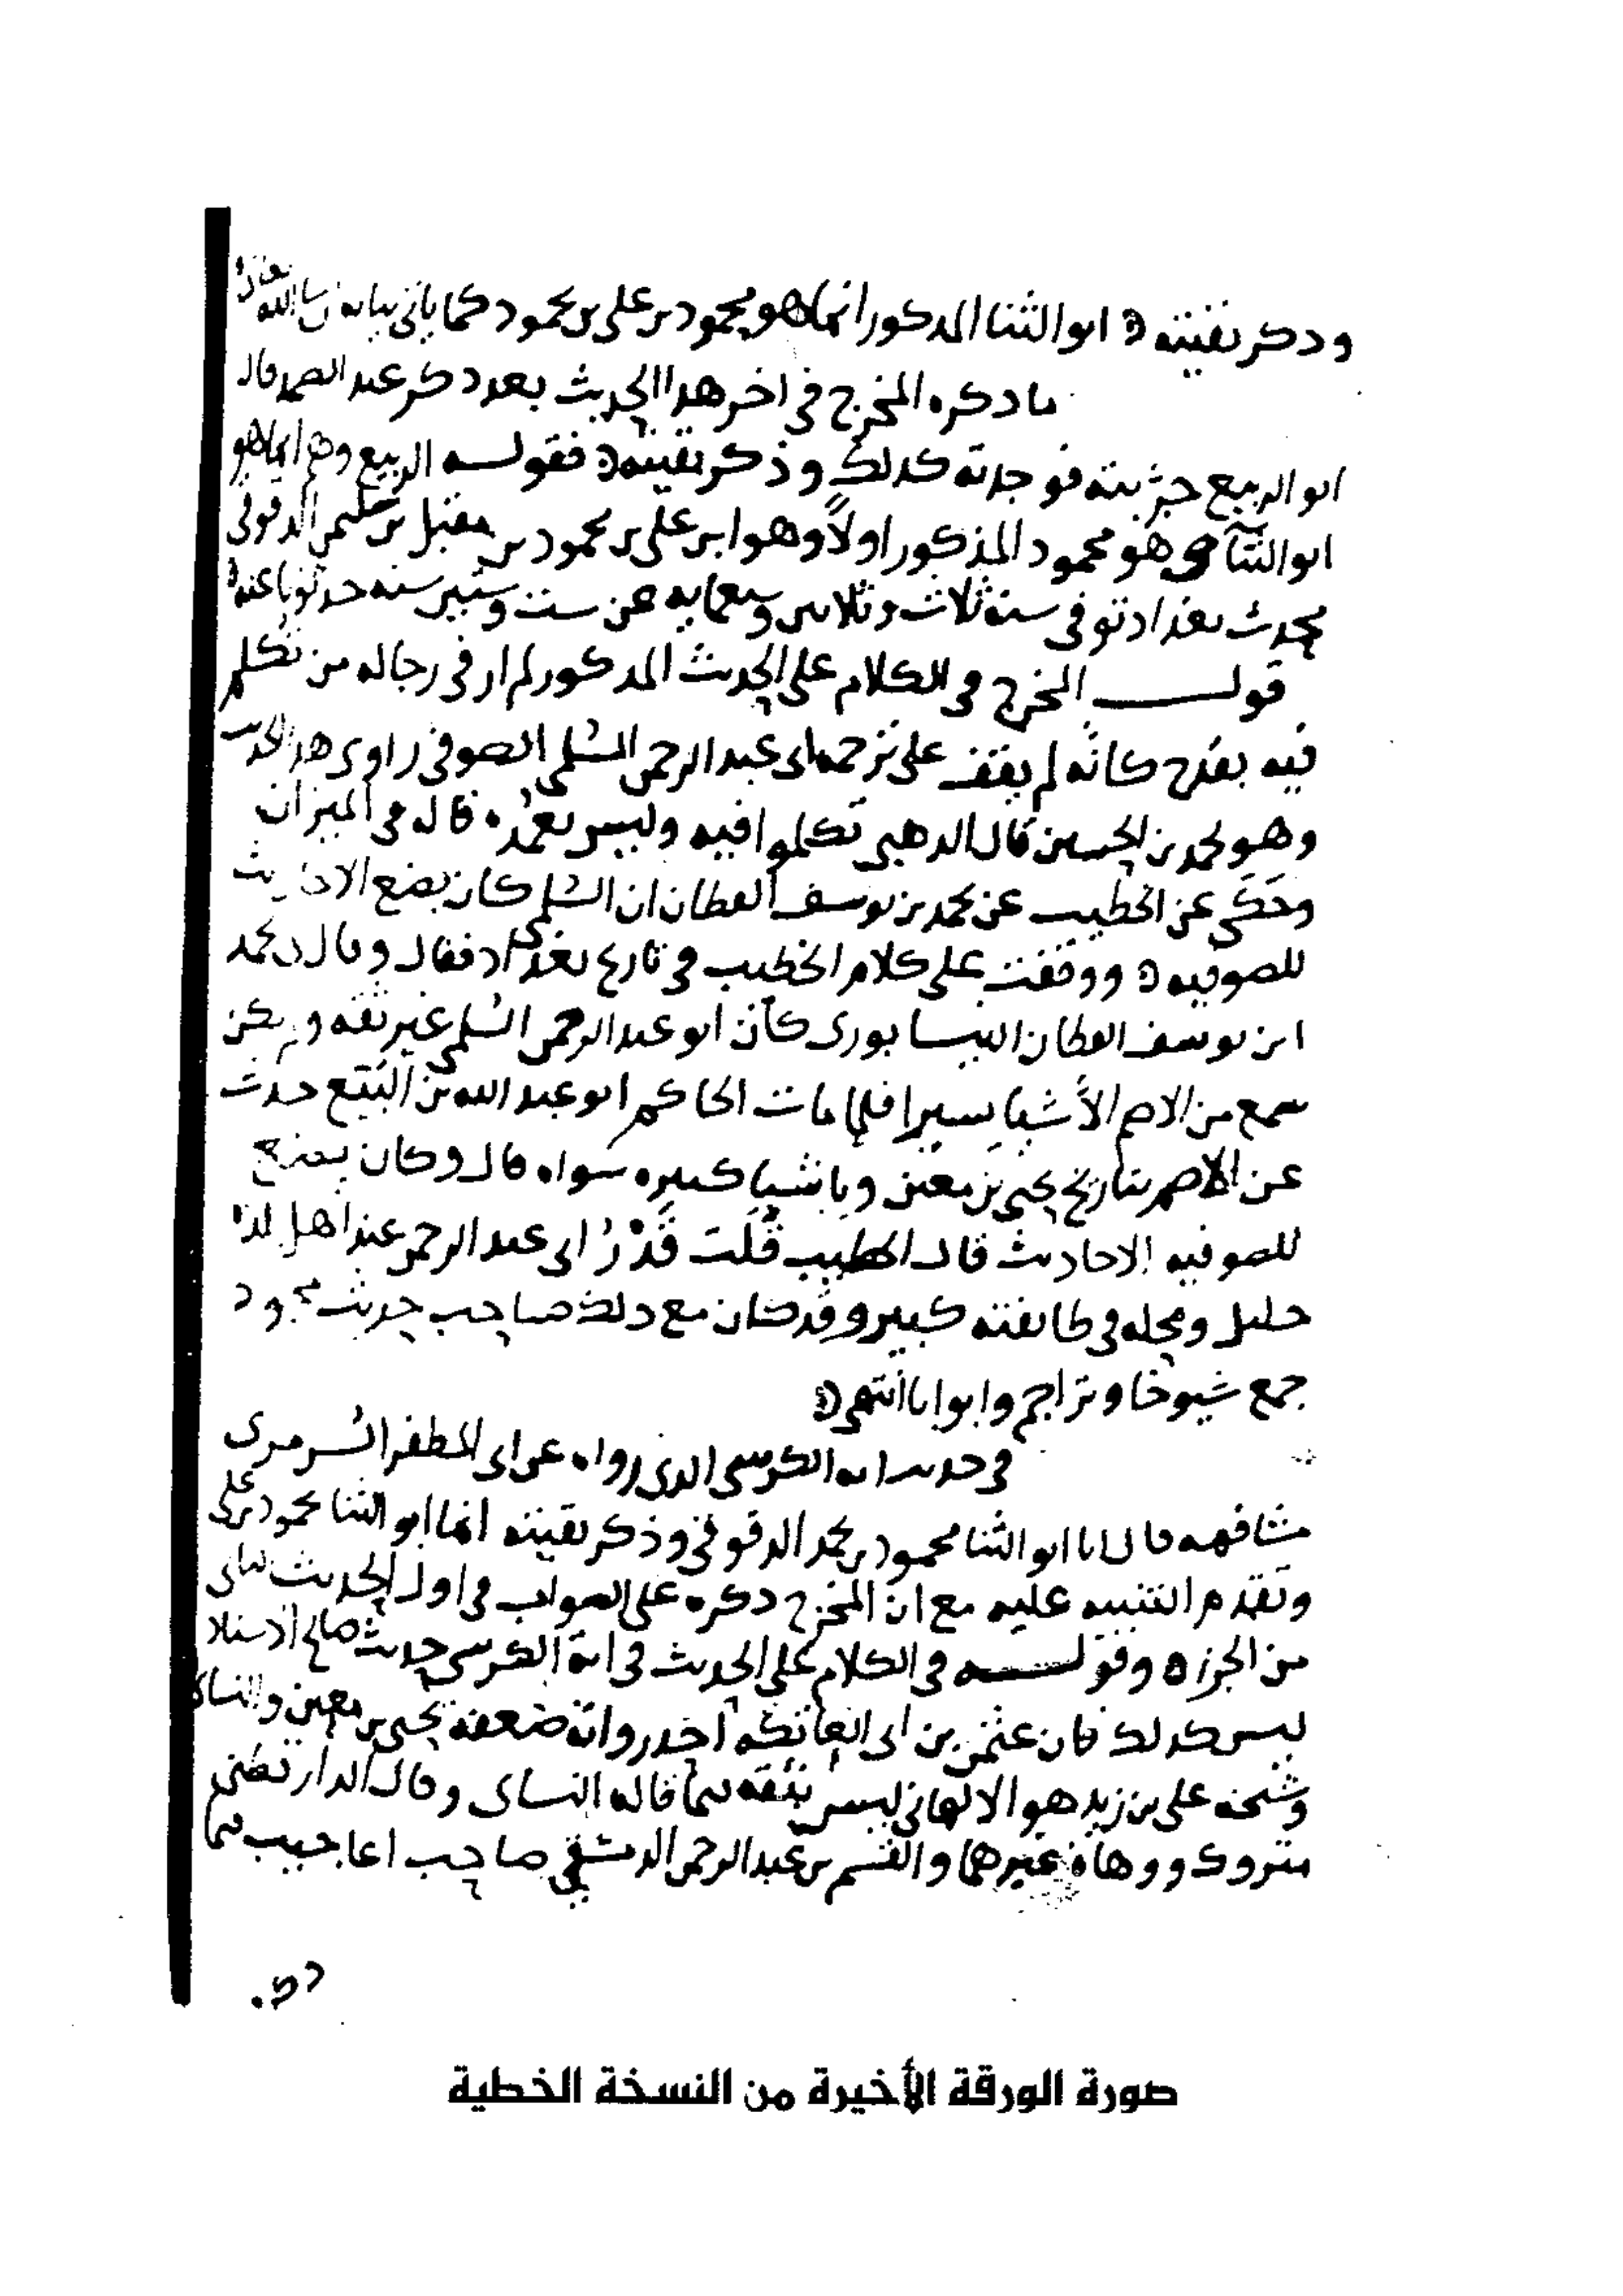 وذكر بقيته ه ابو الثنا المذكور انما هو محمود بن على بن محمود كما ياتى بيانه ان شا الله تعالى
ما ذكره المخرج فى اخر هذا الحديث بعد ذكر عبد الصمد قال
ابو الربيع جربته فوجدته كذلك وذكر بقيته ه فقوله الربيع وهم انما هو
ابو الثنآ هو محمود المذكور اولاً وهو ابن على بن محمود بن مقبل بن سليمن الدقوقى
محدث بغداد توفى سنة ثلاث وثلاثين وسبعمايه عن ست وستين سنه حدثونا عنه
قولــه المخرج فى الكلام على الحديث المذكور لم ار فى رجاله من تُكلم
فيه بقدح كانه لم يقف على ترجمة ابى عبد الرحمن السُّلمى الصوفى راوى هذا الحديث
وهو محمد بن الحسين قال الذهبى تكلموا فيه وليس بعُمده قاله فى الميزان
وحَكَى عن الخطيب عن محمد بن يوسف القطان ان السُّلمى كان يضع الاحاديث
للصوفيه ه ووقفت على كلام الخطيب فى تاريخ بغداد فقال وقال لى محمد
ابن يوسف القطان النيسابورى كان ابو عبد الرحمن السُّلمى غير ثقه ولم يكن
سمع من الاصم الا شيا يسيرا فلما مات الحاكم ابو عبد الله بن البَيّع حدث
عن الاصم بتاريخ يحيى بن معين وباشيا كثيره سواه قال وكان يضع
للصوفيه الاحاديث قال الخطيب قُلت قَدْرُ ابى عبد الرحمن عند اهل بلده
جليل ومحله فى طايفته كبير وقد كان مع ذلك صاحب حديث مجودا
جمع شيوخا وتراجم وابوابا انتهى ه
فى حديث اية الكرسى الذى رواه عن ابى المظفر السُّرمرى
مشافهه قال انا ابو الثنا محمود بن محمد الدقوقى وذكر بقيته انما ابو الثنا محمود بن على
وتقدم التنبيه عليه مع ان المخرج ذكره على الصواب فى اول الحديث
من الجزء ه وقولــه فى الكلام على الحديث فى اية الكرسى حديث صالح الاسناد
ليس كذلك فان عثمن بن ابى العاتكه احد رواته ضعفه يحيى بن معين والنساى
وشيخه على بن زيد هو الالهانى ليس بثقه كما قاله النساى وقال الدارقطنى
متروك ووهاه غيرهما والقسم بن عبد الرحمن الدمشقى صاحب اعاجيب كما
صورة الورقة الأخيرة من النسخة الخطية